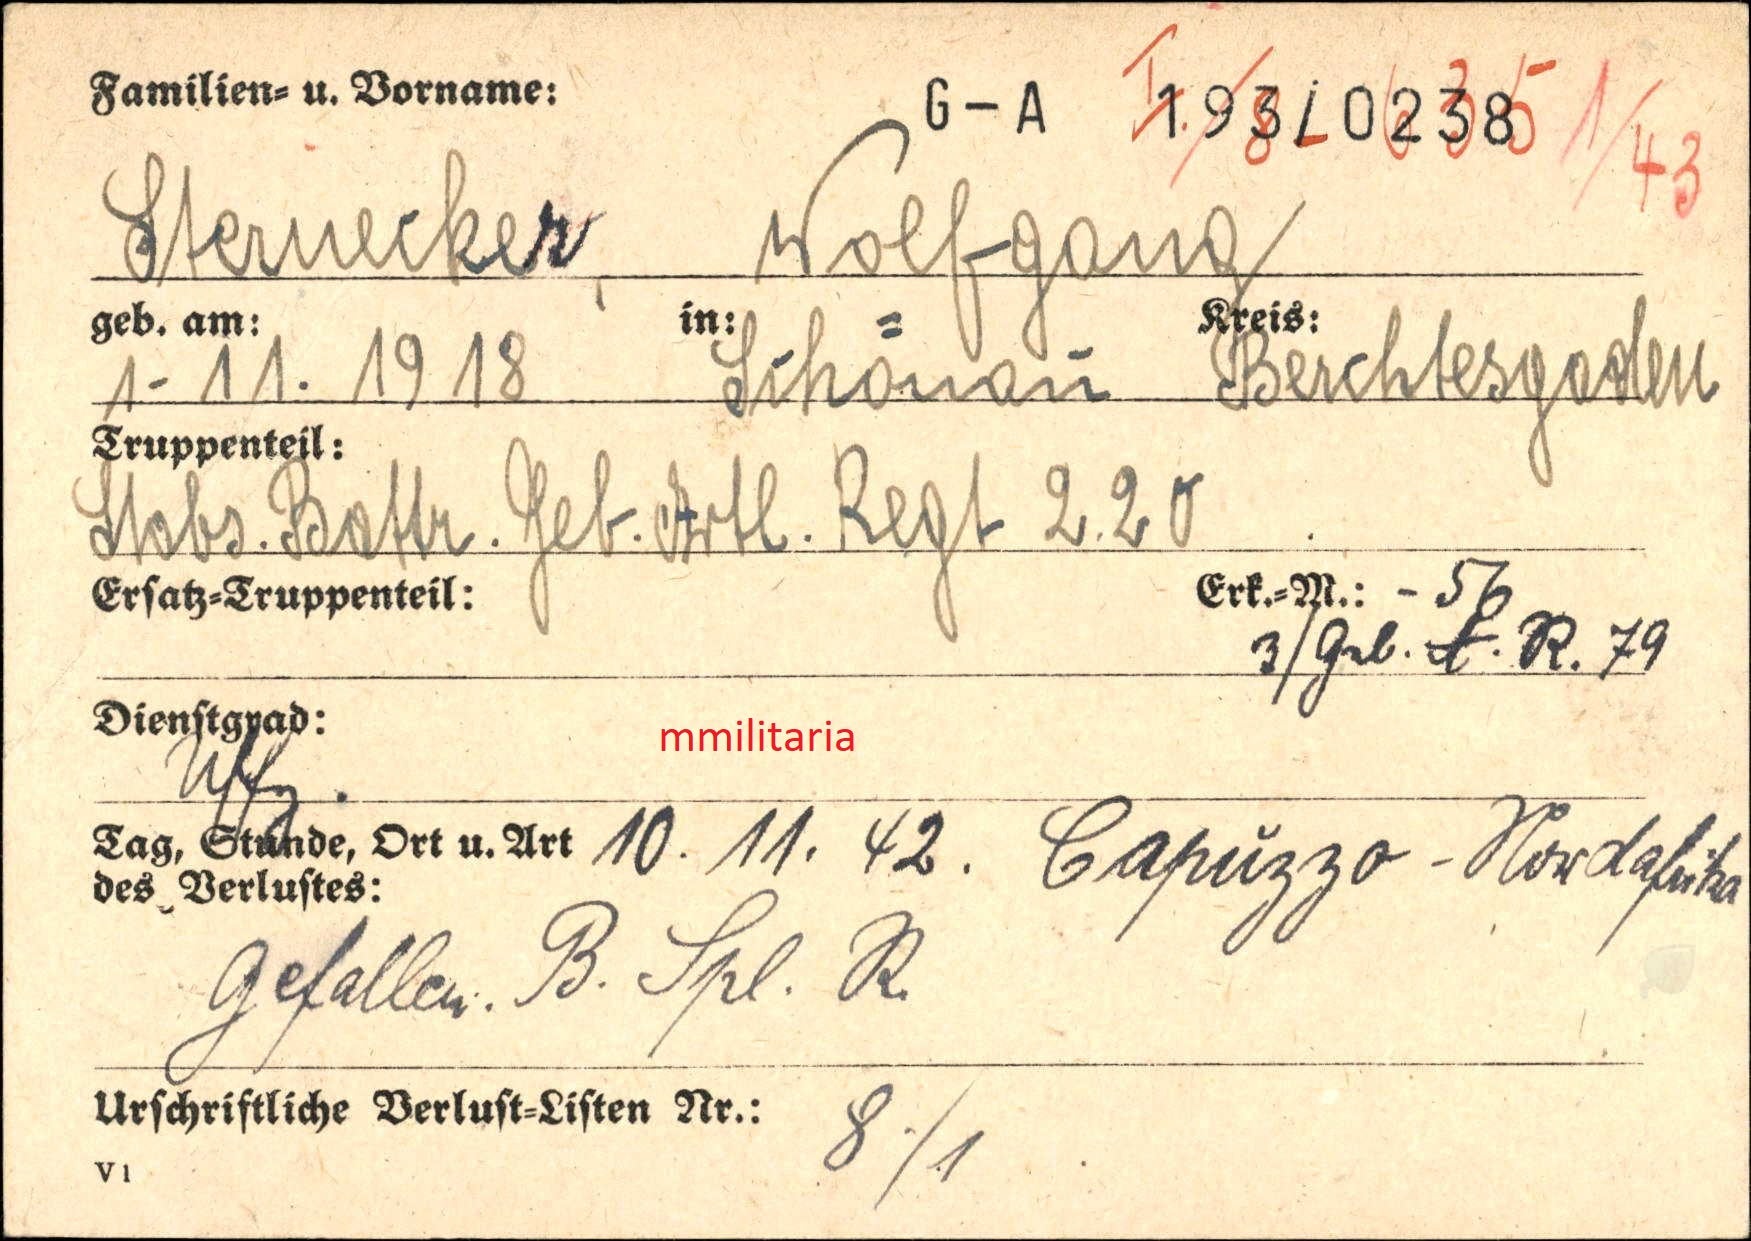 Familien- u. Vorname:
G-A 193/0238
1/43
Sternecker, Wolfgang
geb. am: in: Kreis:
1-11. 1918 Schönau Berchtesgaden
Truppenteil:
Stabs. Battr. Geb. Artl. Regt 2.20
Ersatz-Truppenteil: Erk.-M.: - 56
3/Geb. A. R. 79
Dienstgrad:
mmilitaria
Uffz.
Tag, Stunde, Ort u. Art 10. 11. 42. Capuzzo - Nordafrika
des Verlustes:
Gefallen. B. Spl. R.
Urschriftliche Verlust-Listen Nr.: 8./1
V 1